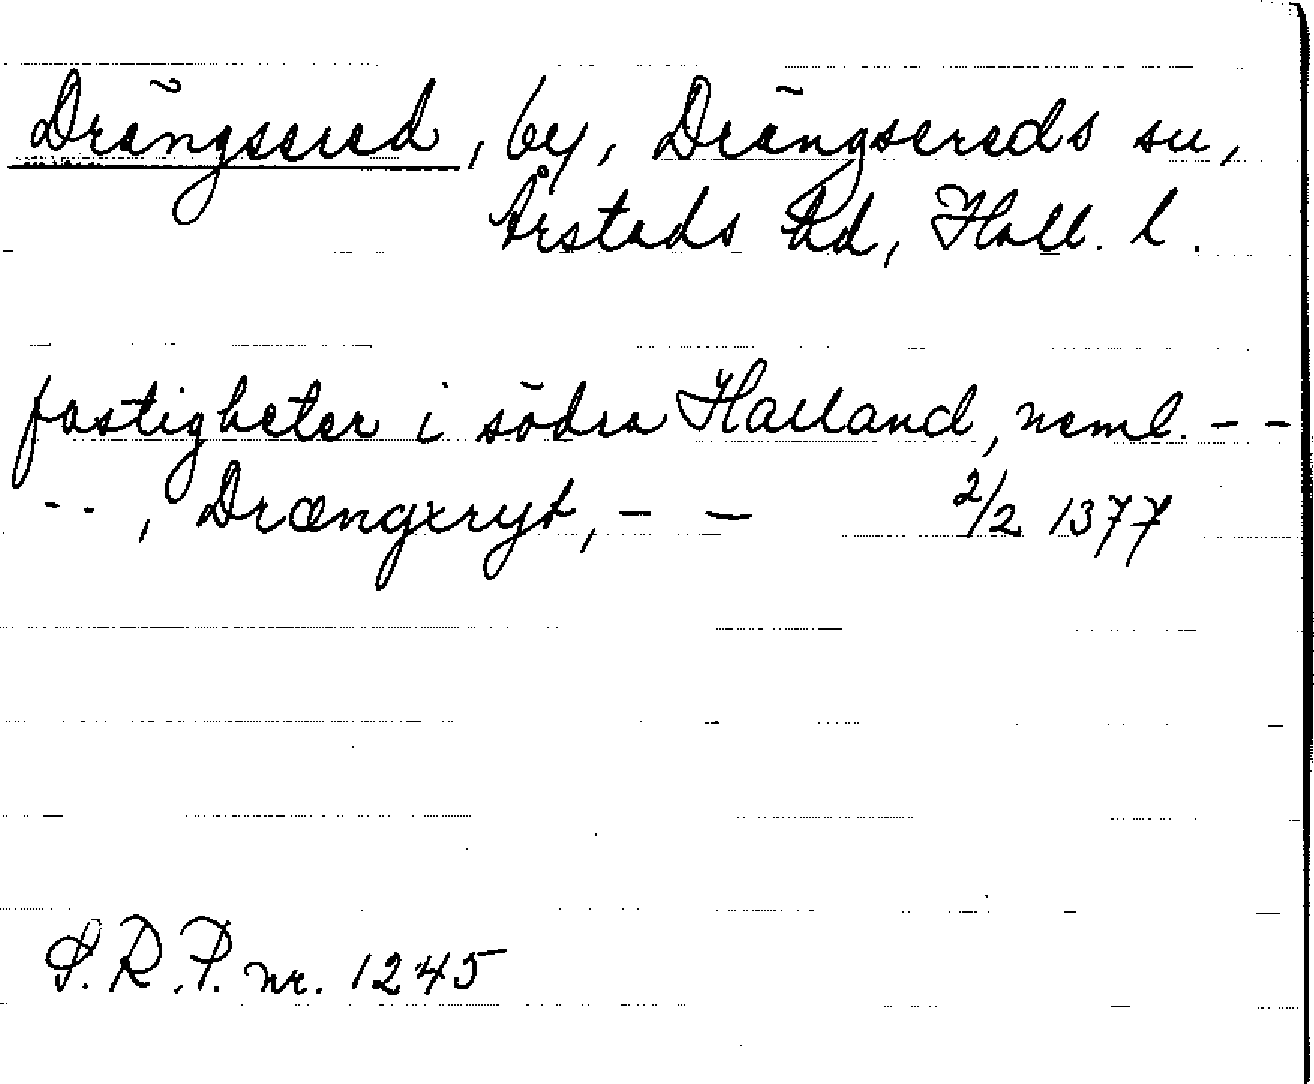 Drängsered, by, Drängsereds sn,
Årstads hd, Hall. l.
fastigheter i södra Halland, neml. - -
- - , Drængxryt, - - 2/2 1377
S.R.P. nr. 1245